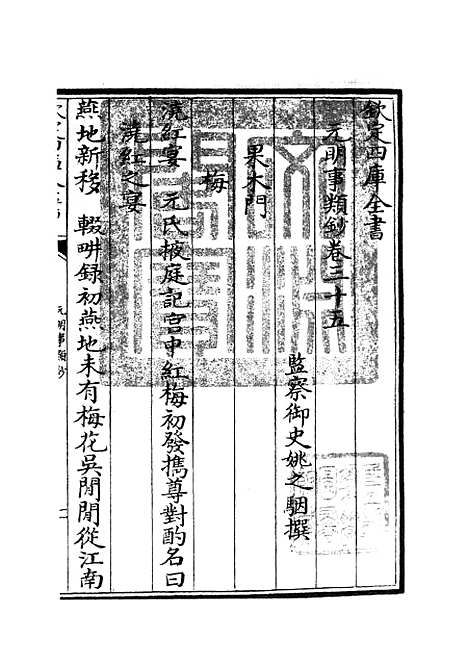 欽定四庫全書
元明事類鈔卷三十五
監察御史姚之駰撰
果木門
梅
澆紅宴　元氏掖庭記宫中紅梅初發攜尊對酌名曰
澆紅之宴
燕地新移　輟畊録初燕地未有梅花吳閒閒從江南
元明事類鈔